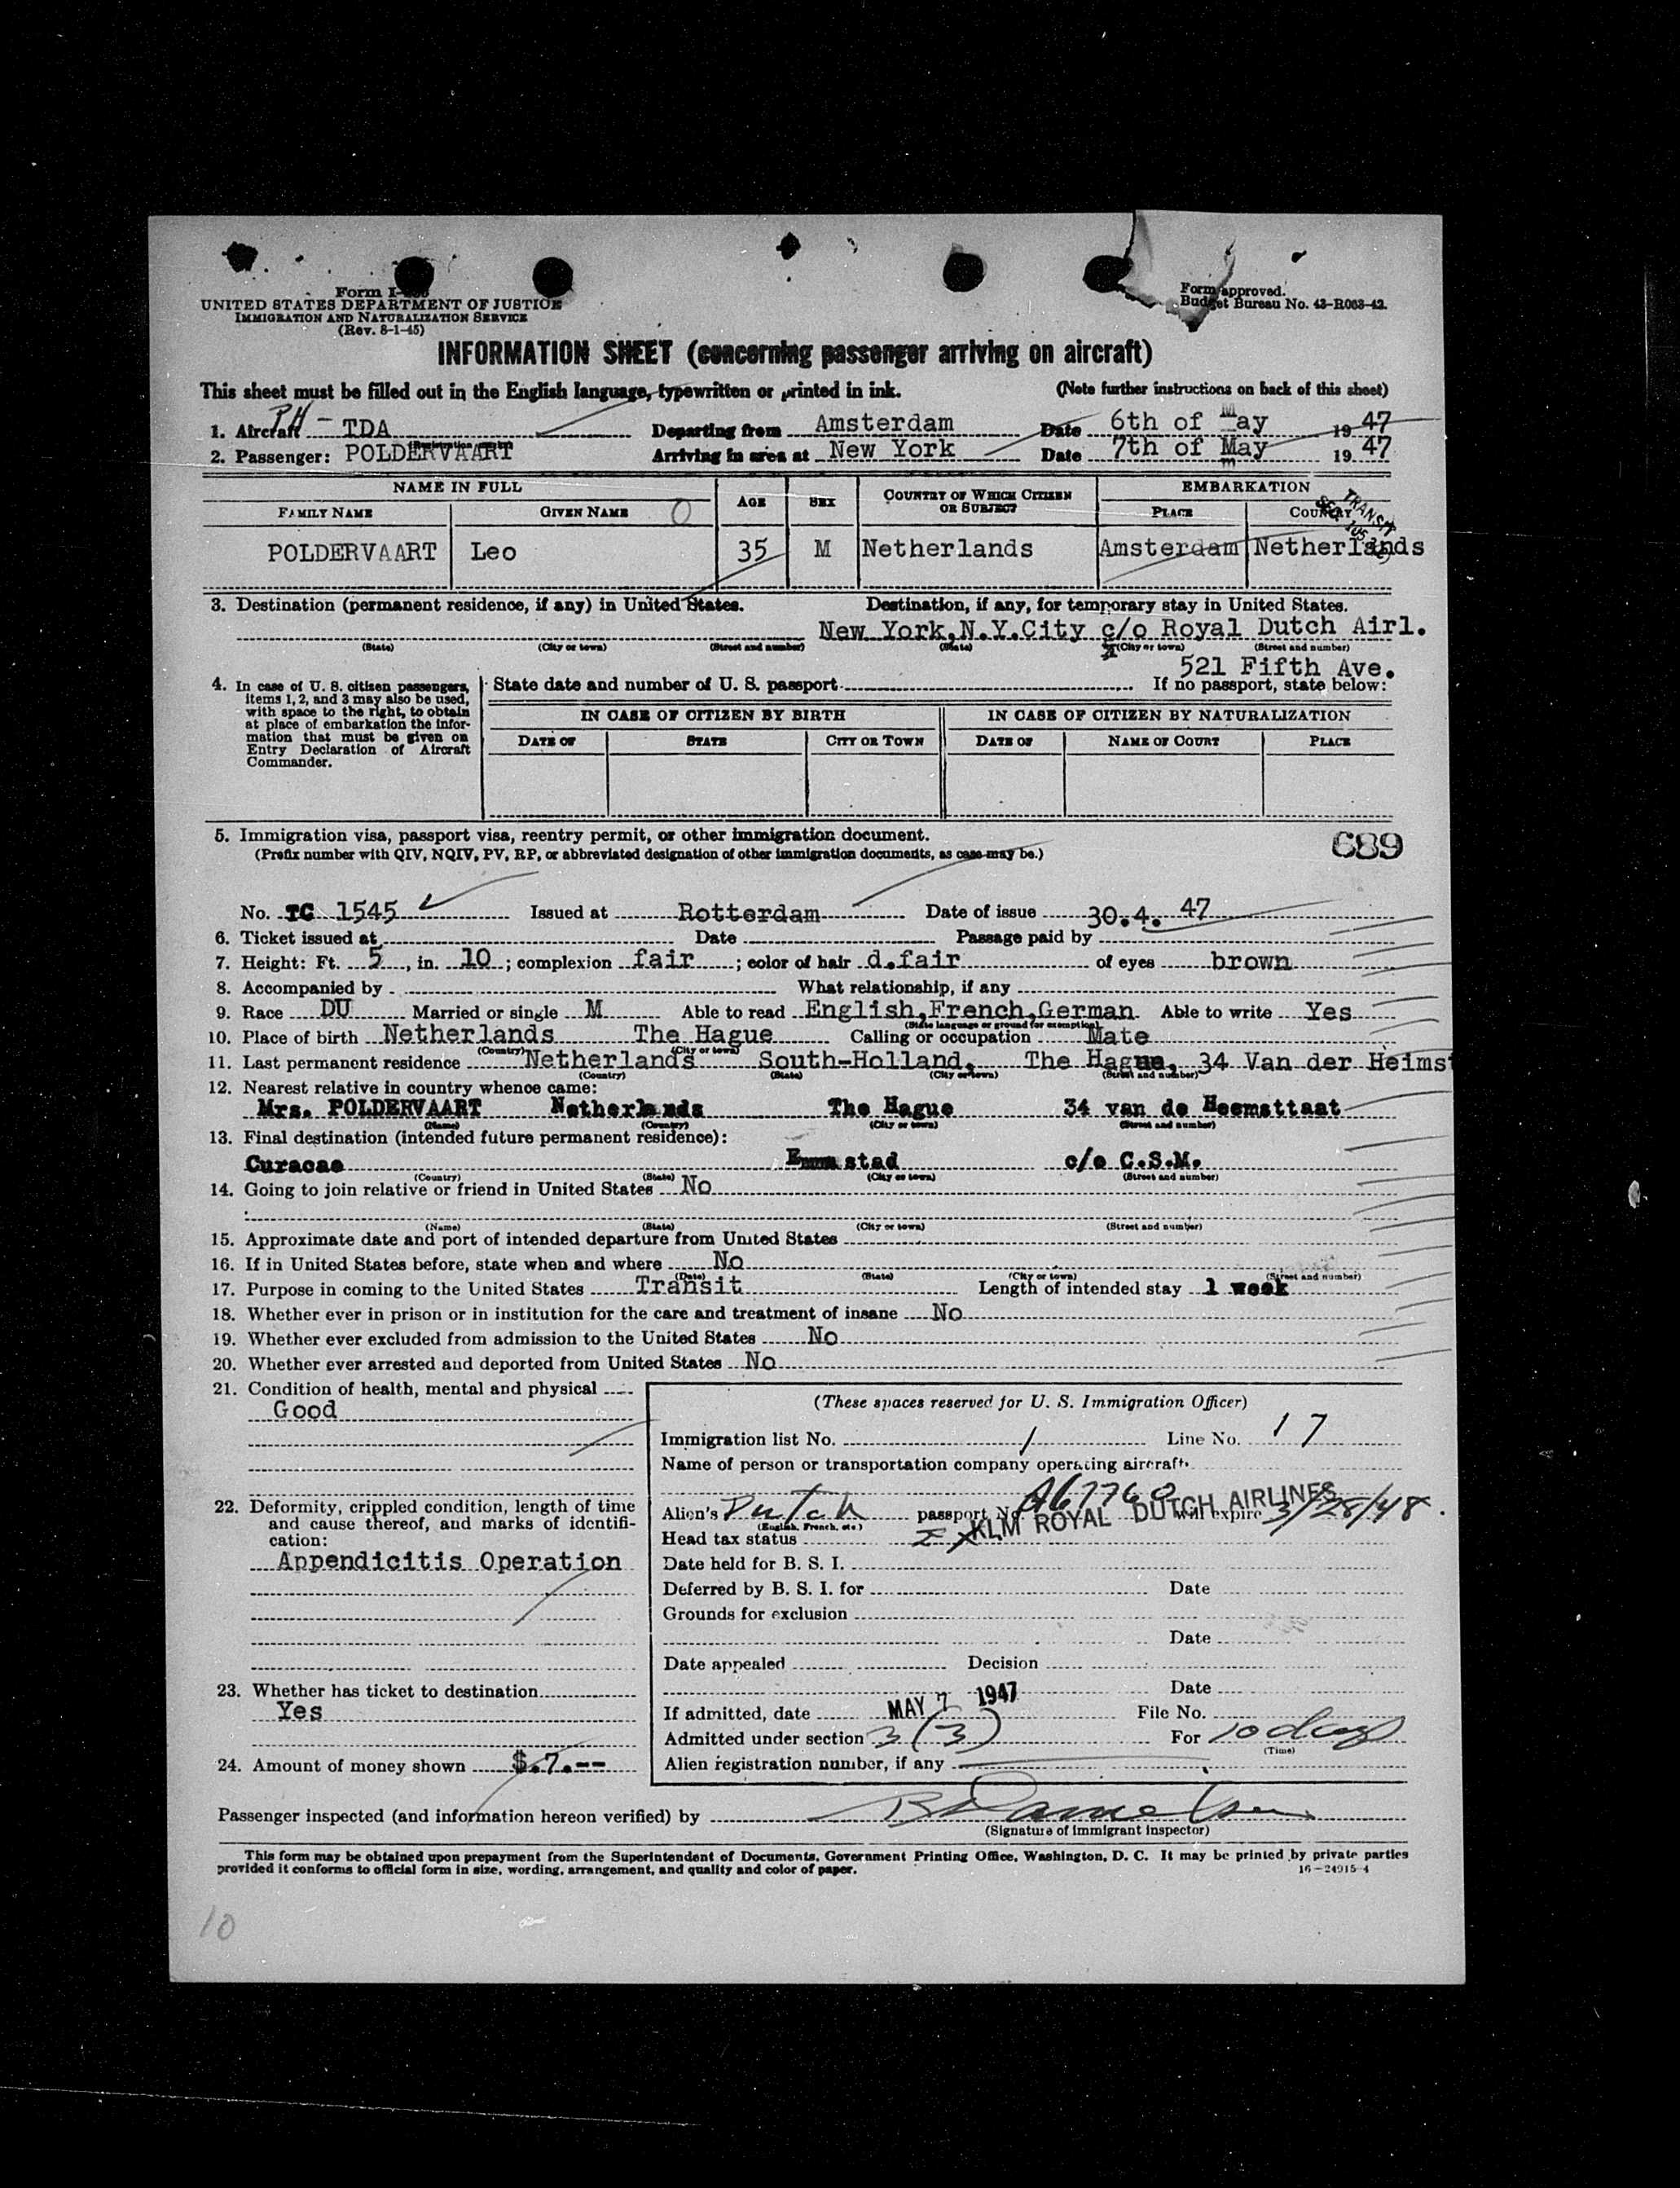 Form I-
UNITED STATES DEPARTMENT OF JUSTICE
IMMIGRATION AND NATURALIZATION SERVICE
(Rev. 8-1-45)
Form approved.
Budget Bureau No. 43-R063-42.
INFORMATION SHEET (concerning passenger arriving on aircraft)
This sheet must be filled out in the English language, typewritten or printed in ink. (Note further instructions on back of this sheet)
1. Aircraft PH - TDA Departing from Amsterdam Date 6th of May 19 47
(Registration marks)
2. Passenger: POLDERVAART Arriving in area at New York Date 7th of May 19 47
NAME IN FULL AGE SEX COUNTRY OF WHICH CITIZEN OR SUBJECT EMBARKATION
FAMILY NAME GIVEN NAME O PLACE COUNTRY
TRANSIT
POLDERVAART Leo 35 M Netherlands Amsterdam Netherlands
3. Destination (permanent residence, if any) in United States. Destination, if any, for temporary stay in United States.
New York,N.Y.City c/o Royal Dutch Airl.
(State) (City or town) (Street and number) (State) (City or town) (Street and number)
521 Fifth Ave.
4. In case of U. S. citizen passengers, items 1, 2, and 3 may also be used, with space to the right, to obtain at place of embarkation the information that must be given on Entry Declaration of Aircraft Commander.
State date and number of U. S. passport If no passport, state below:
IN CASE OF CITIZEN BY BIRTH IN CASE OF CITIZEN BY NATURALIZATION
DATE OF STATE CITY OR TOWN DATE OF NAME OF COURT PLACE
5. Immigration visa, passport visa, reentry permit, or other immigration document. 689
(Prefix number with QIV, NQIV, PV, RP, or abbreviated designation of other immigration documents, as case may be.)
No. TC 1545 Issued at Rotterdam Date of issue 30.4. 47
6. Ticket issued at Date Passage paid by
7. Height: Ft. 5, in. 10; complexion fair; color of hair d.fair of eyes brown
8. Accompanied by What relationship, if any
9. Race DU Married or single M Able to read English,French,German Able to write Yes
(State language or ground for exemption)
10. Place of birth Netherlands The Hague Calling or occupation Mate
(Country) (City or town)
11. Last permanent residence Netherlands South-Holland, The Hague, 34 Van der Heimst
(Country) (State) (City or town) (Street and number)
12. Nearest relative in country whence came:
Mrs. POLDERVAART Netherlands The Hague 34 van de Heemsttaat
(Name) (Country) (City or town) (Street and number)
13. Final destination (intended future permanent residence):
Curacao Emmastad c/o C.S.M.
(Country) (State) (City or town) (Street and number)
14. Going to join relative or friend in United States No
(Name) (State) (City or town) (Street and number)
15. Approximate date and port of intended departure from United States
16. If in United States before, state when and where No
(Date) (State) (City or town) (Street and number)
17. Purpose in coming to the United States Transit Length of intended stay 1 week
18. Whether ever in prison or in institution for the care and treatment of insane No
19. Whether ever excluded from admission to the United States No
20. Whether ever arrested and deported from United States No
21. Condition of health, mental and physical
Good
22. Deformity, crippled condition, length of time and cause thereof, and marks of identification:
Appendicitis Operation
23. Whether has ticket to destination
Yes
24. Amount of money shown $.7.--
(These spaces reserved for U. S. Immigration Officer)
Immigration list No. 1 Line No. 17
Name of person or transportation company operating aircraft
KLM ROYAL DUTCH AIRLINES
Alien's Dutch passport No. A67760 will expire 3/28/48.
(English, French, etc.)
Head tax status Ex
Date held for B. S. I.
Deferred by B. S. I. for Date
Grounds for exclusion
Date
Date appealed Decision
Date
If admitted, date MAY 7 1947 File No.
Admitted under section 3 (3) For 10 days
(Time)
Alien registration number, if any
Passenger inspected (and information hereon verified) by
(Signature of immigrant inspector)
This form may be obtained upon prepayment from the Superintendent of Documents, Government Printing Office, Washington, D. C. It may be printed by private parties
provided it conforms to official form in size, wording, arrangement, and quality and color of paper. 16-24915-4
10